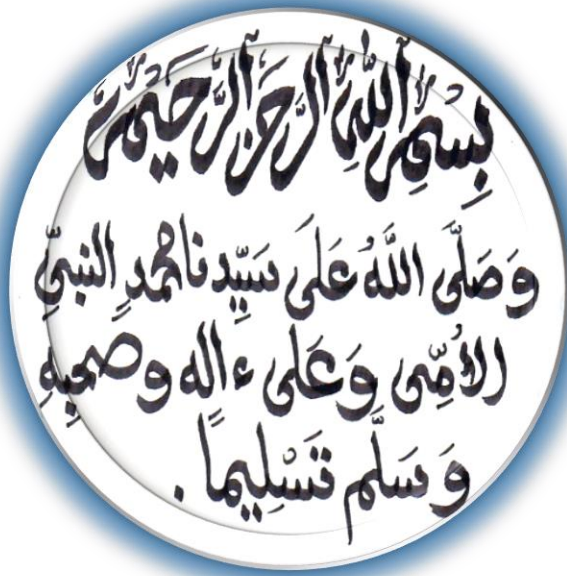 بِسْمِ اللهِ الرَّحْمٰنِ الرَّحِيمِ
وَصَلَّى اللَّهُ عَلَى سَيِّدِنَا مُحَمَّدٍ النَّبِيِّ
الأُمِّي وَعَلَى ءاله وصحبِهِ
وَسَلَّم تَسْلِيمًا .